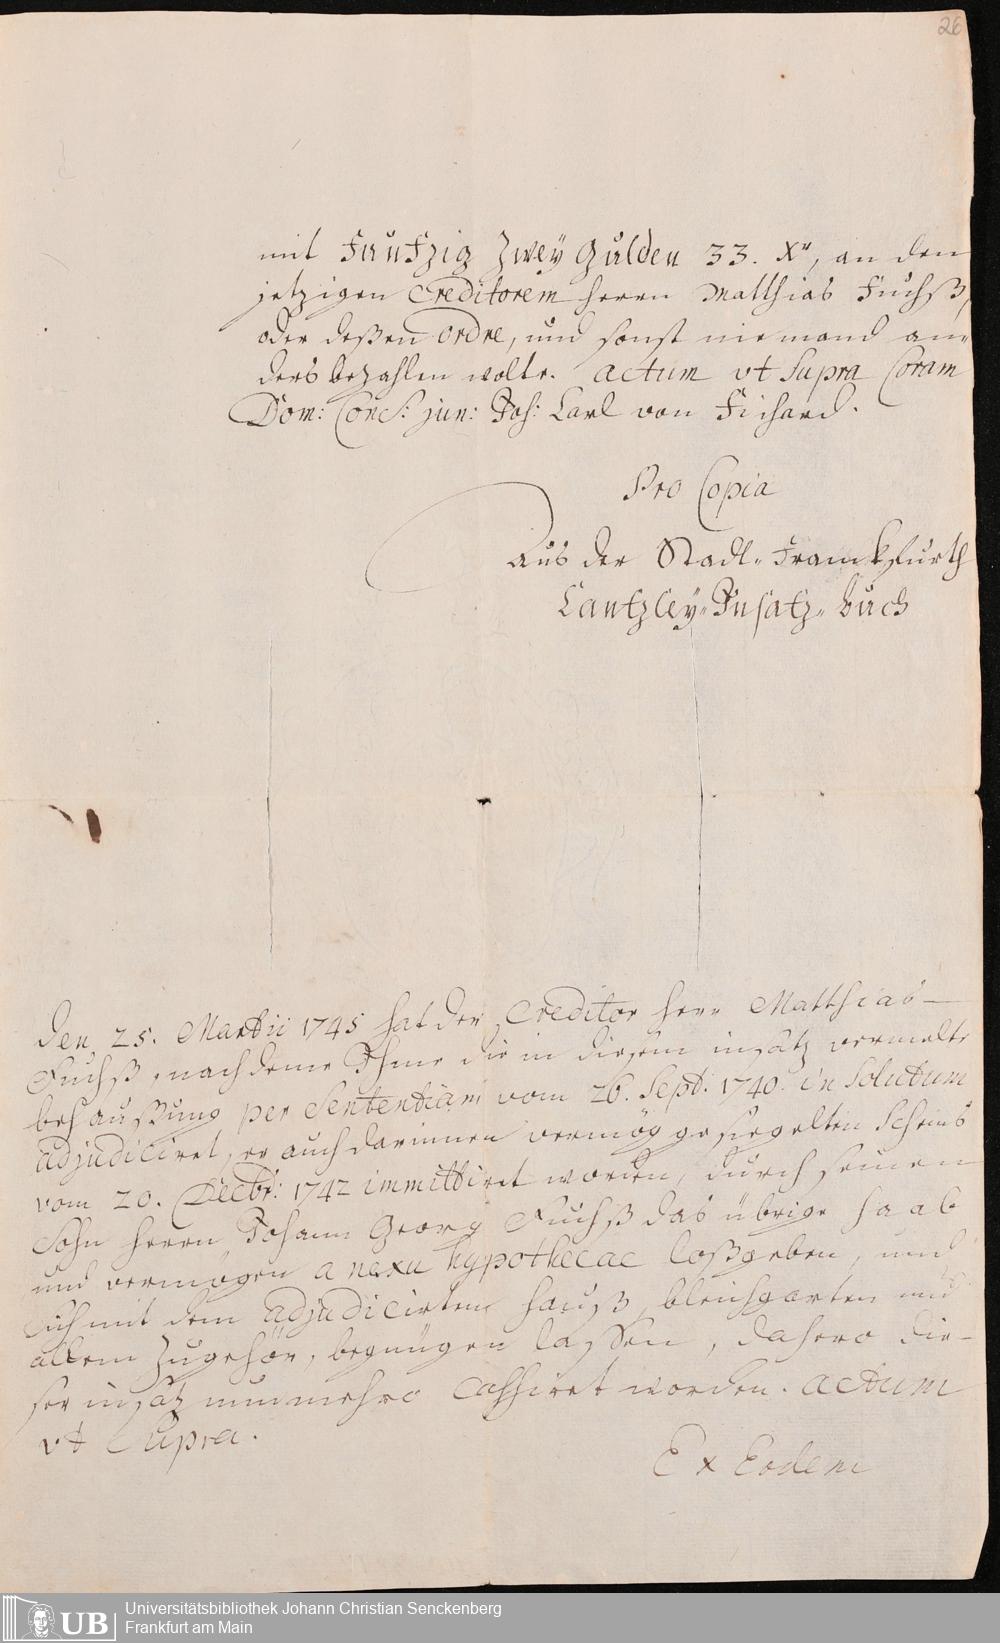 26
mit Funfzig Zwey Gulden 33. Xr, an den
jetzigen Creditorem herrn Matthias Fuchß,
oder deßen ordre, und sonst niemand an-
ders bezahlen wolte. Actum ut Supra Coram
Dom: Cons: jun: Joh: Carl von Fichard.
Pro Copia
Aus der Stadt-Franckfurth
Cantzley-Insatz-Buch
Den 25. Martii 1745 hat der Creditor Herr Matthias
Fuchß, nachdeme Ihme die in diesem insatz vermelte
behaußung per Sententiam vom 26. Sept: 1740. in Solutum
adjudiciret, er auch darinnen vermög gesiegelten Scheins
vom 20. Decbr: 1742 immittiret worden, durch seinen
Sohn herrn Johann Georg Fuchß das übrige haab
und vermögen a nexu hypothecae loßgeben, und
sich mit dem adjudicirten hauß, bleichgarten und
allem Zugehör, begnügen lassen, dahero die-
ser insatz nunmehro cassiret worden. Actum
ut Supra.
Ex Eodem
UB
Universitätsbibliothek Johann Christian Senckenberg
Frankfurt am Main